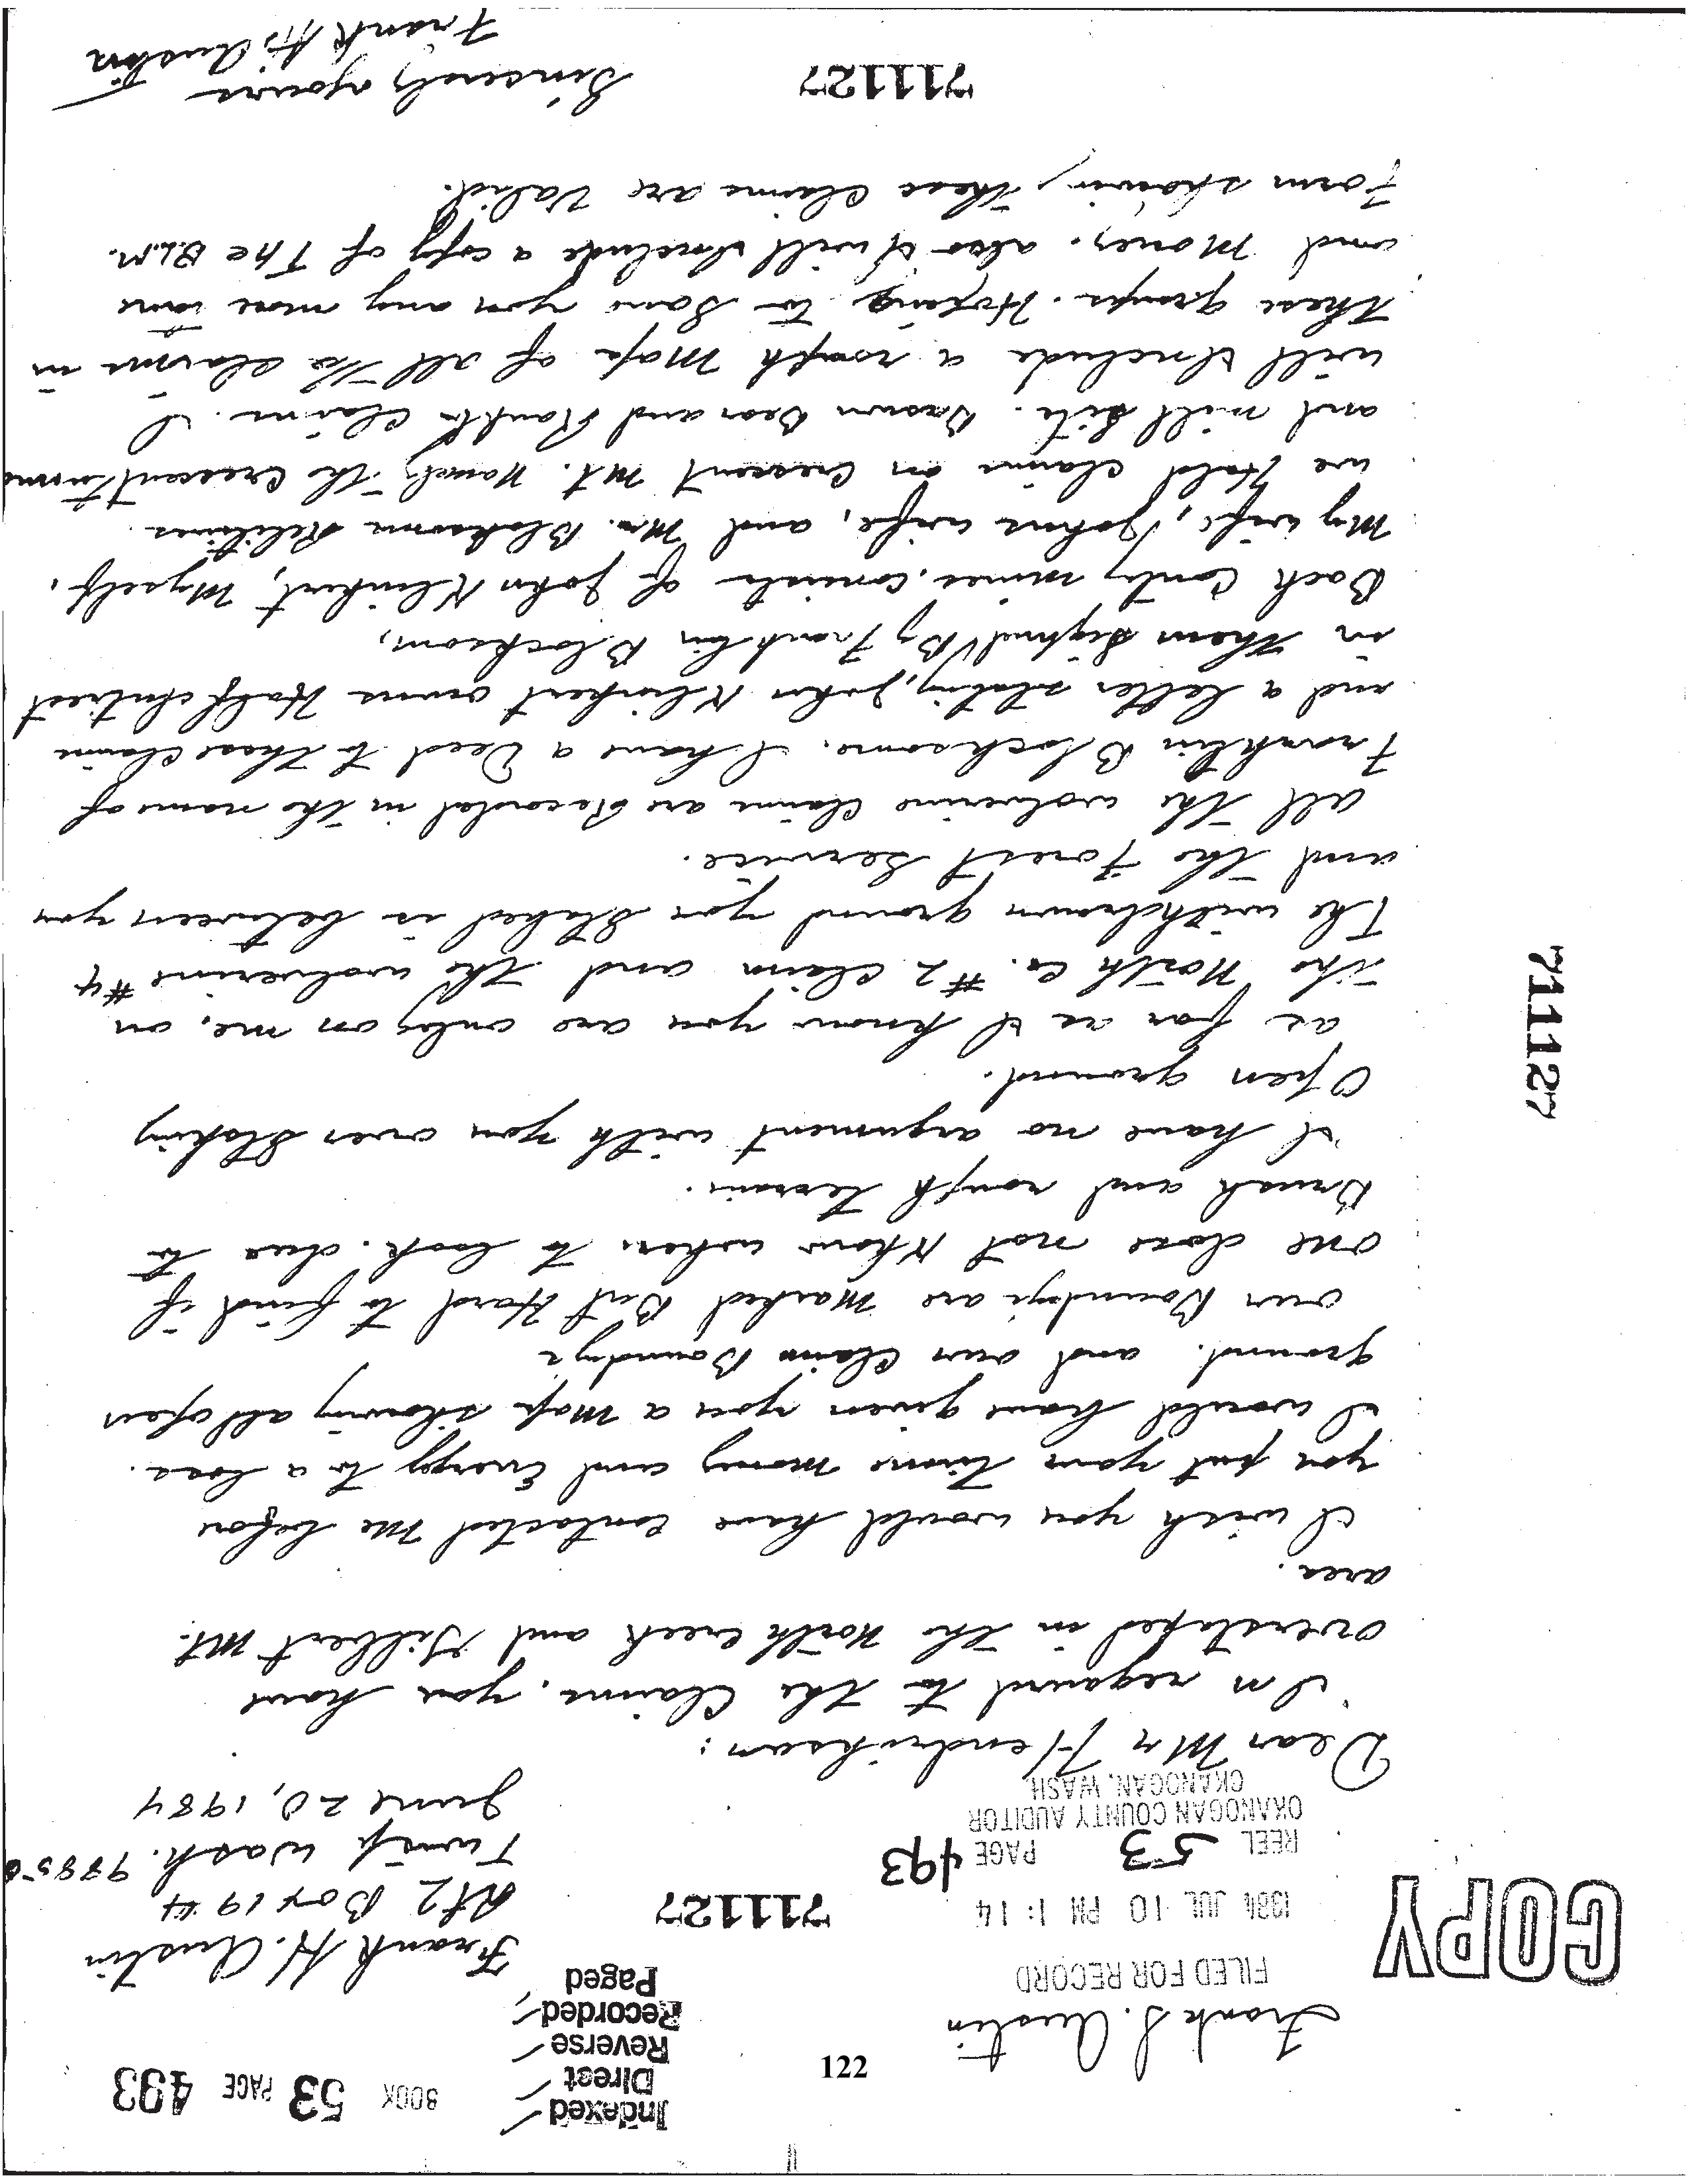 Indexed
Direct
Reverse
Recorded
Paged
BOOK 53 PAGE 493
122
Frank S. Austin
FILED FOR RECORD
1984 JUL 10 PM 1:14
REEL 53 PAGE 493
OKANOGAN COUNTY AUDITOR
OKANOGAN, WASH.
COPY
711127
Frank H. Austin
Rt 2 Box 194
Twisp Wash. 98856
June 20, 1984
Dear Mr Hendriksen:
In regaurd to the Claims, you have
overstaked in the North Creek and Gilbert Mt.
area.
I wish you would have contacted Me befor
you put your time money and Energy to a loss.
I would have given you a Map showing all open
ground. and our Claim Boundrys
our Boundrys are Marked But Hard to find if
one dose not Know where to look. due to
Brush and rough terrain.
I have no argument with you over Staking
Open ground.
as far as I know you are only on me, on
the North Cr. #2 Claim and the wolverine #4
The withdrawn ground you Staked is between you
and the Forest Service.
all the wolverine Claims are Recorded in the name of
Franklin Blocksome. I have a Deed to these Claims
and a letter stating, John Klinkert owns Half intrest
in them Signed By Franklin Blocksom,
Back Contry mines. consists of John Klinkert, Myself,
My wife, Johns wife, and Mr. Bloksoms Relitives
we Hold claims on Crescent Mt. Namely the Crescent
and mill Site. Brown Bear and Claims. I
will Include a rough Map of all the claims in
these groups. Hoping to Save you any more time
and Money. also I will Include a copy of The B.L.M.
Form showing these Claims are Valid.
Sincerely yours
Frank H. Austin
711127
711127